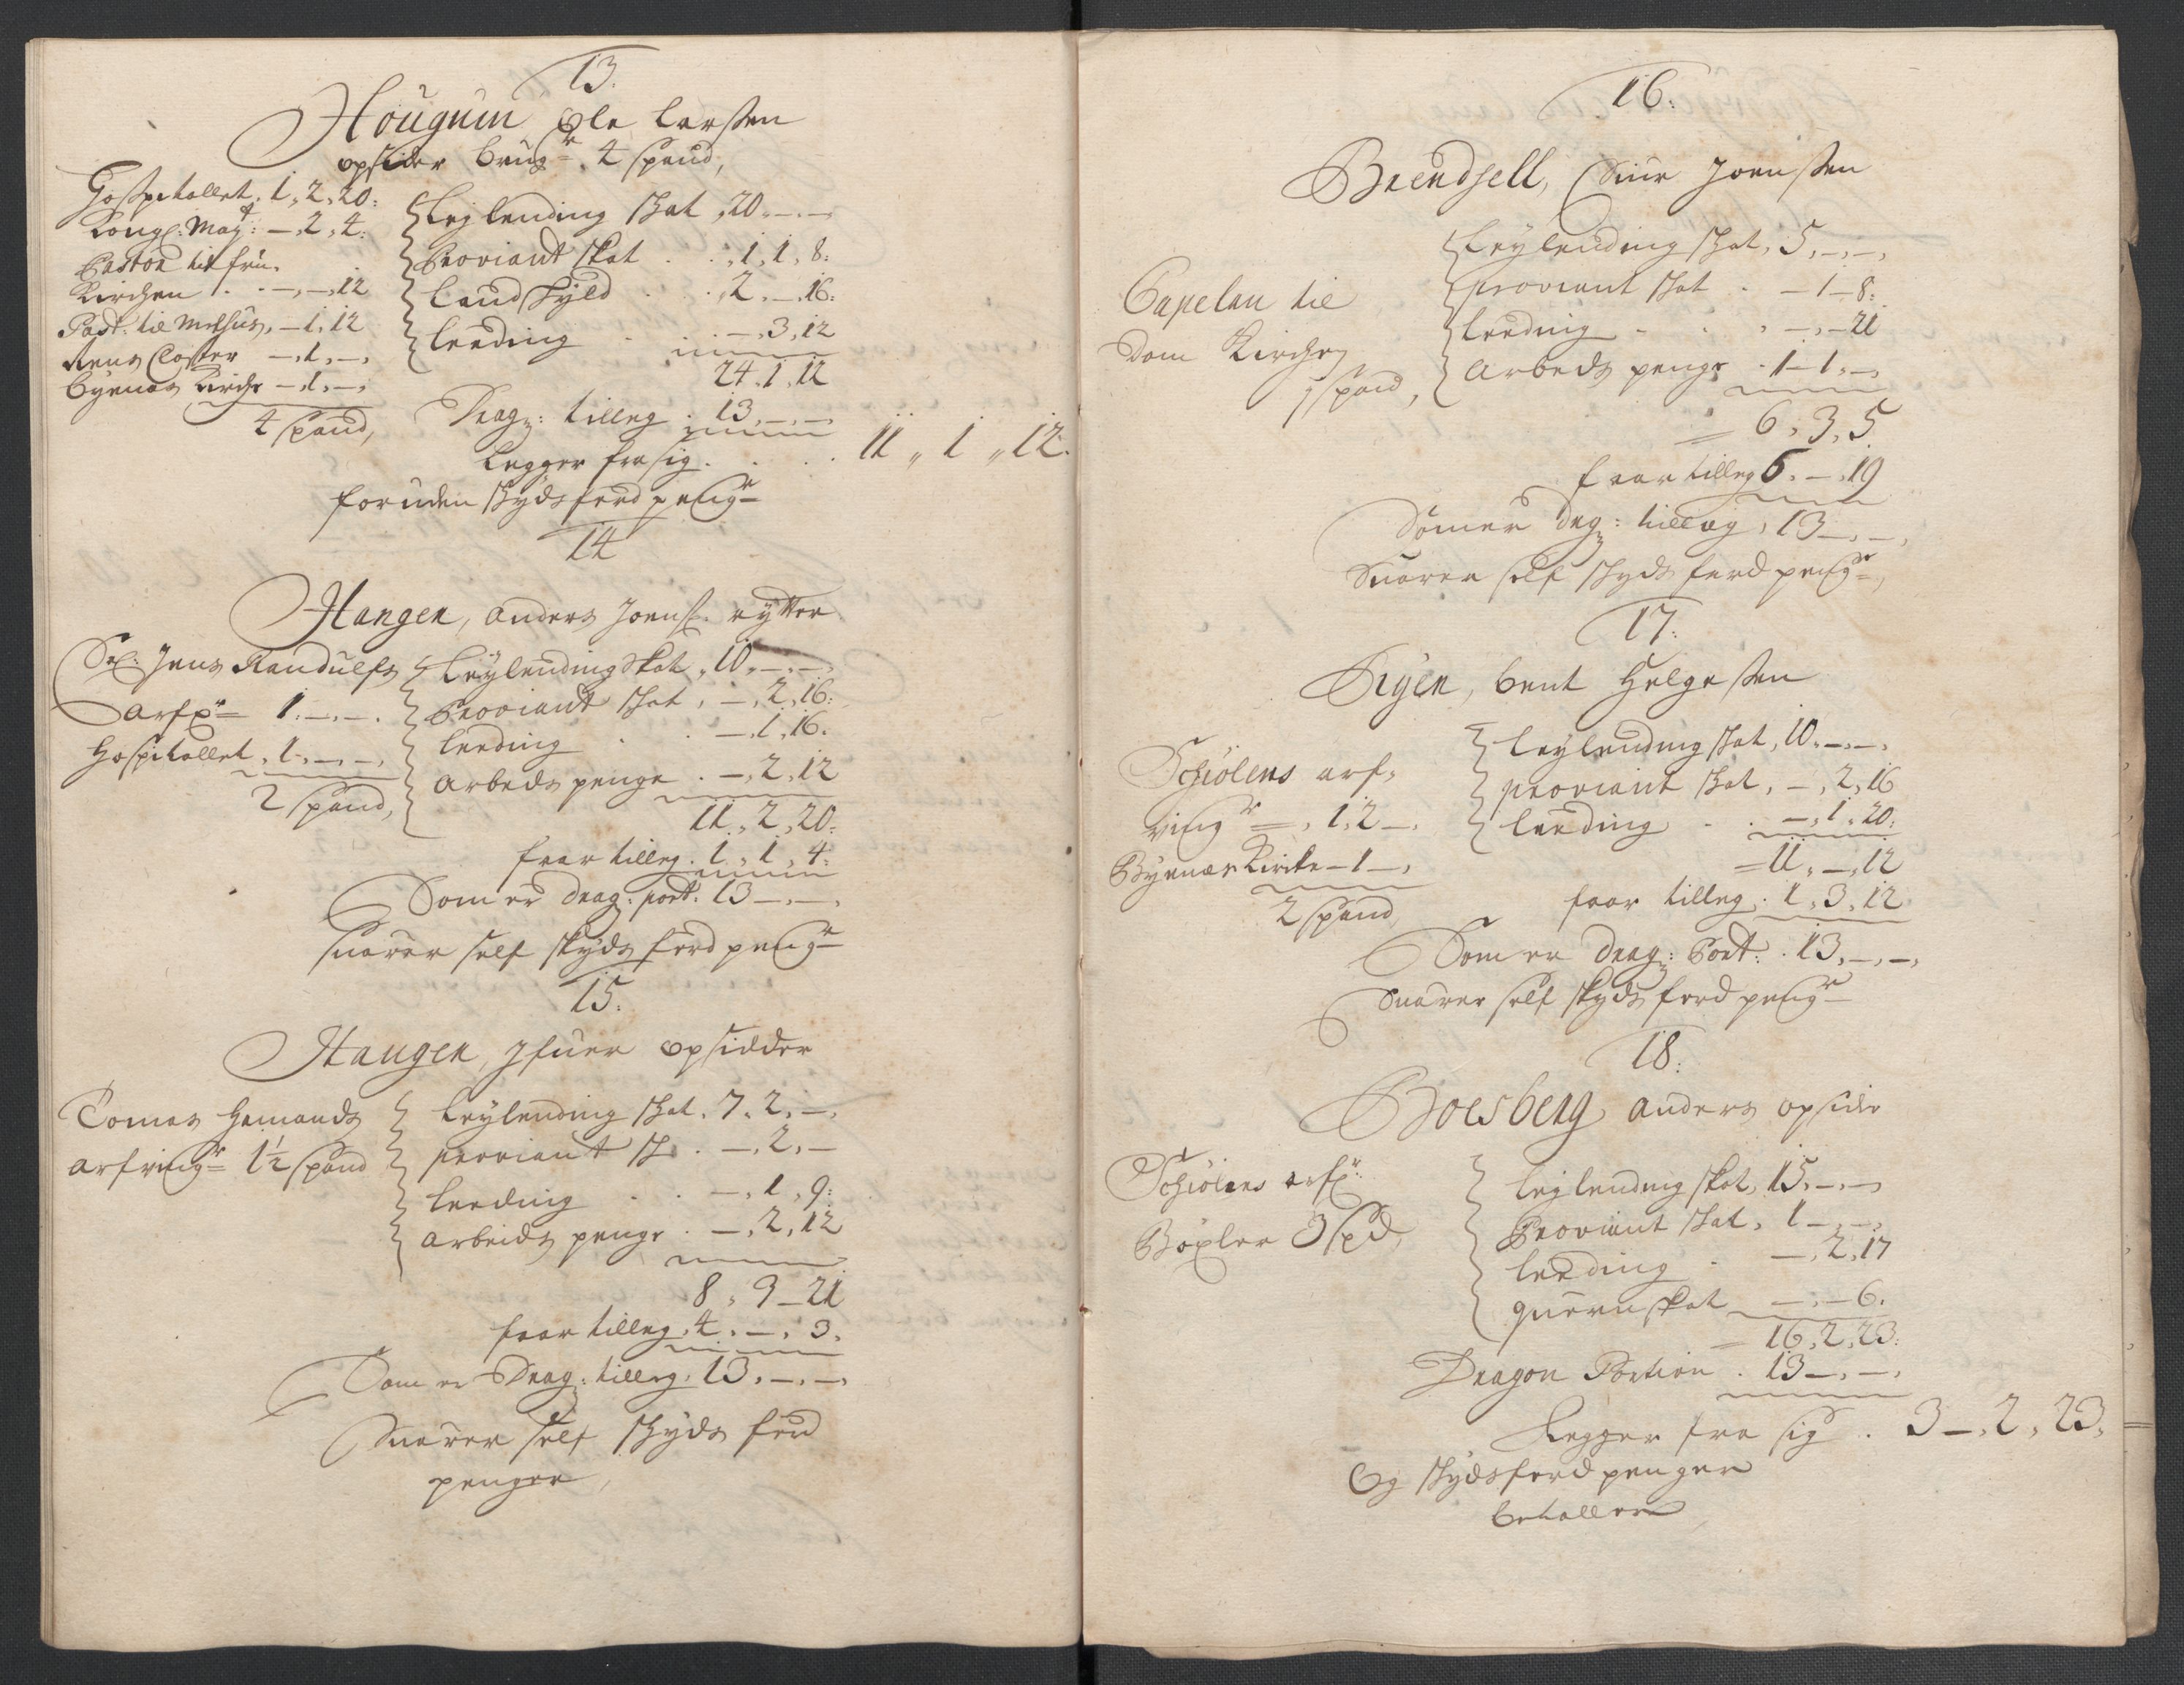 13.
Hougum Ole Larssen
opsider brugr 4 spand,
Hosspitallet. 1, 2, 20:
Kongl: Mayt: –, 2, 4:
Pastor til frü.
Kirchen . . –, –, 12
Past: til Melhus, – 1, 12
Rens Closter –, 1, –,
Byenes Kirche –, 1, –,
4 spand,
Leylending skat , 20, –, –
Proviant skat . . , 1, 1, 8:
Landskyld . . , 2, –, 16:
Leeding . . –, 3, 12
24. 1. 12
Drag: tilleg . 13, –, –,
Legger fra sig . . . . 11 „ 1 „ 12.
foruden skydsferd pengr
14
Hangen, Anders Joenss: rytter
Sl: Jens Randulfs
Arfvr 1. –. –.
Hospitallet , 1, –, –,
2 spand,
Leylending skat , 10, –, –,
Proviant skat , –, 2, 16:
Leeding . . –, 1, 16.
Arbeds penge . –, 2, 12
11, 2, 20:
faar tilleg . 1, 1, 4:
Som er drag: port: 13 –, –,
suarer self skyds ferd pengr
15.
Haugen, Ifuer opsidder
Tomas Hamands
arfvingr 1½ spand
Leylending skat . 7, 2, –,
proviant sk . –, 2, –
Leeding . . –, 1, 9:
Arbeids penge . –, 2, 12
8, 3 – 21
faar tilleg , 4. –. 3.
Som er Drag: tilleg, 13, –, –,
Suarer self skyds ferd
penger,
16.
Brendsell, Siur Joenssen
Capelan til
Dom Kirche
1 spand,
Leylending skat, 5, –, –,
proviant skat . – 1 – 8:
Leeding . . , –, – 21
Arbeds penge . 1 – 1, –,
– 6, 3, 5
faar tilleg 6. –. 19
Somer Dag: tilleg, 13 –, –,
Suarer self skyds ferd pengr,
17.
Ryen, bent Helgessen
Schiölens arf-
vingr –, 1, 2 –,
Byenes Kirke – 1 –,
2 spand
Leylending skat, 10, –, –,
proviant skat, –, 2, 16
Leeding . . –, 1, 20:
– 11, –, 12
faar tilleg . 1, 3, 12
Som er drag: Port: . 13, –, –,
Suarer self skyds ferd pengr
18.
Boesberg Anders opsider
Schiölens arfvr:
Böxler 3 spd
Leylending skat, 15, –, –
Proviant skat, 1 –, –,
Leeding . –, 2, 17
querneskat –, – 6.
– 16, 2, 23:
Dragon Portion . 13 –, –,
Legger fra sig . 3 –, 2, 23,
Og skydsferd penger
beholler